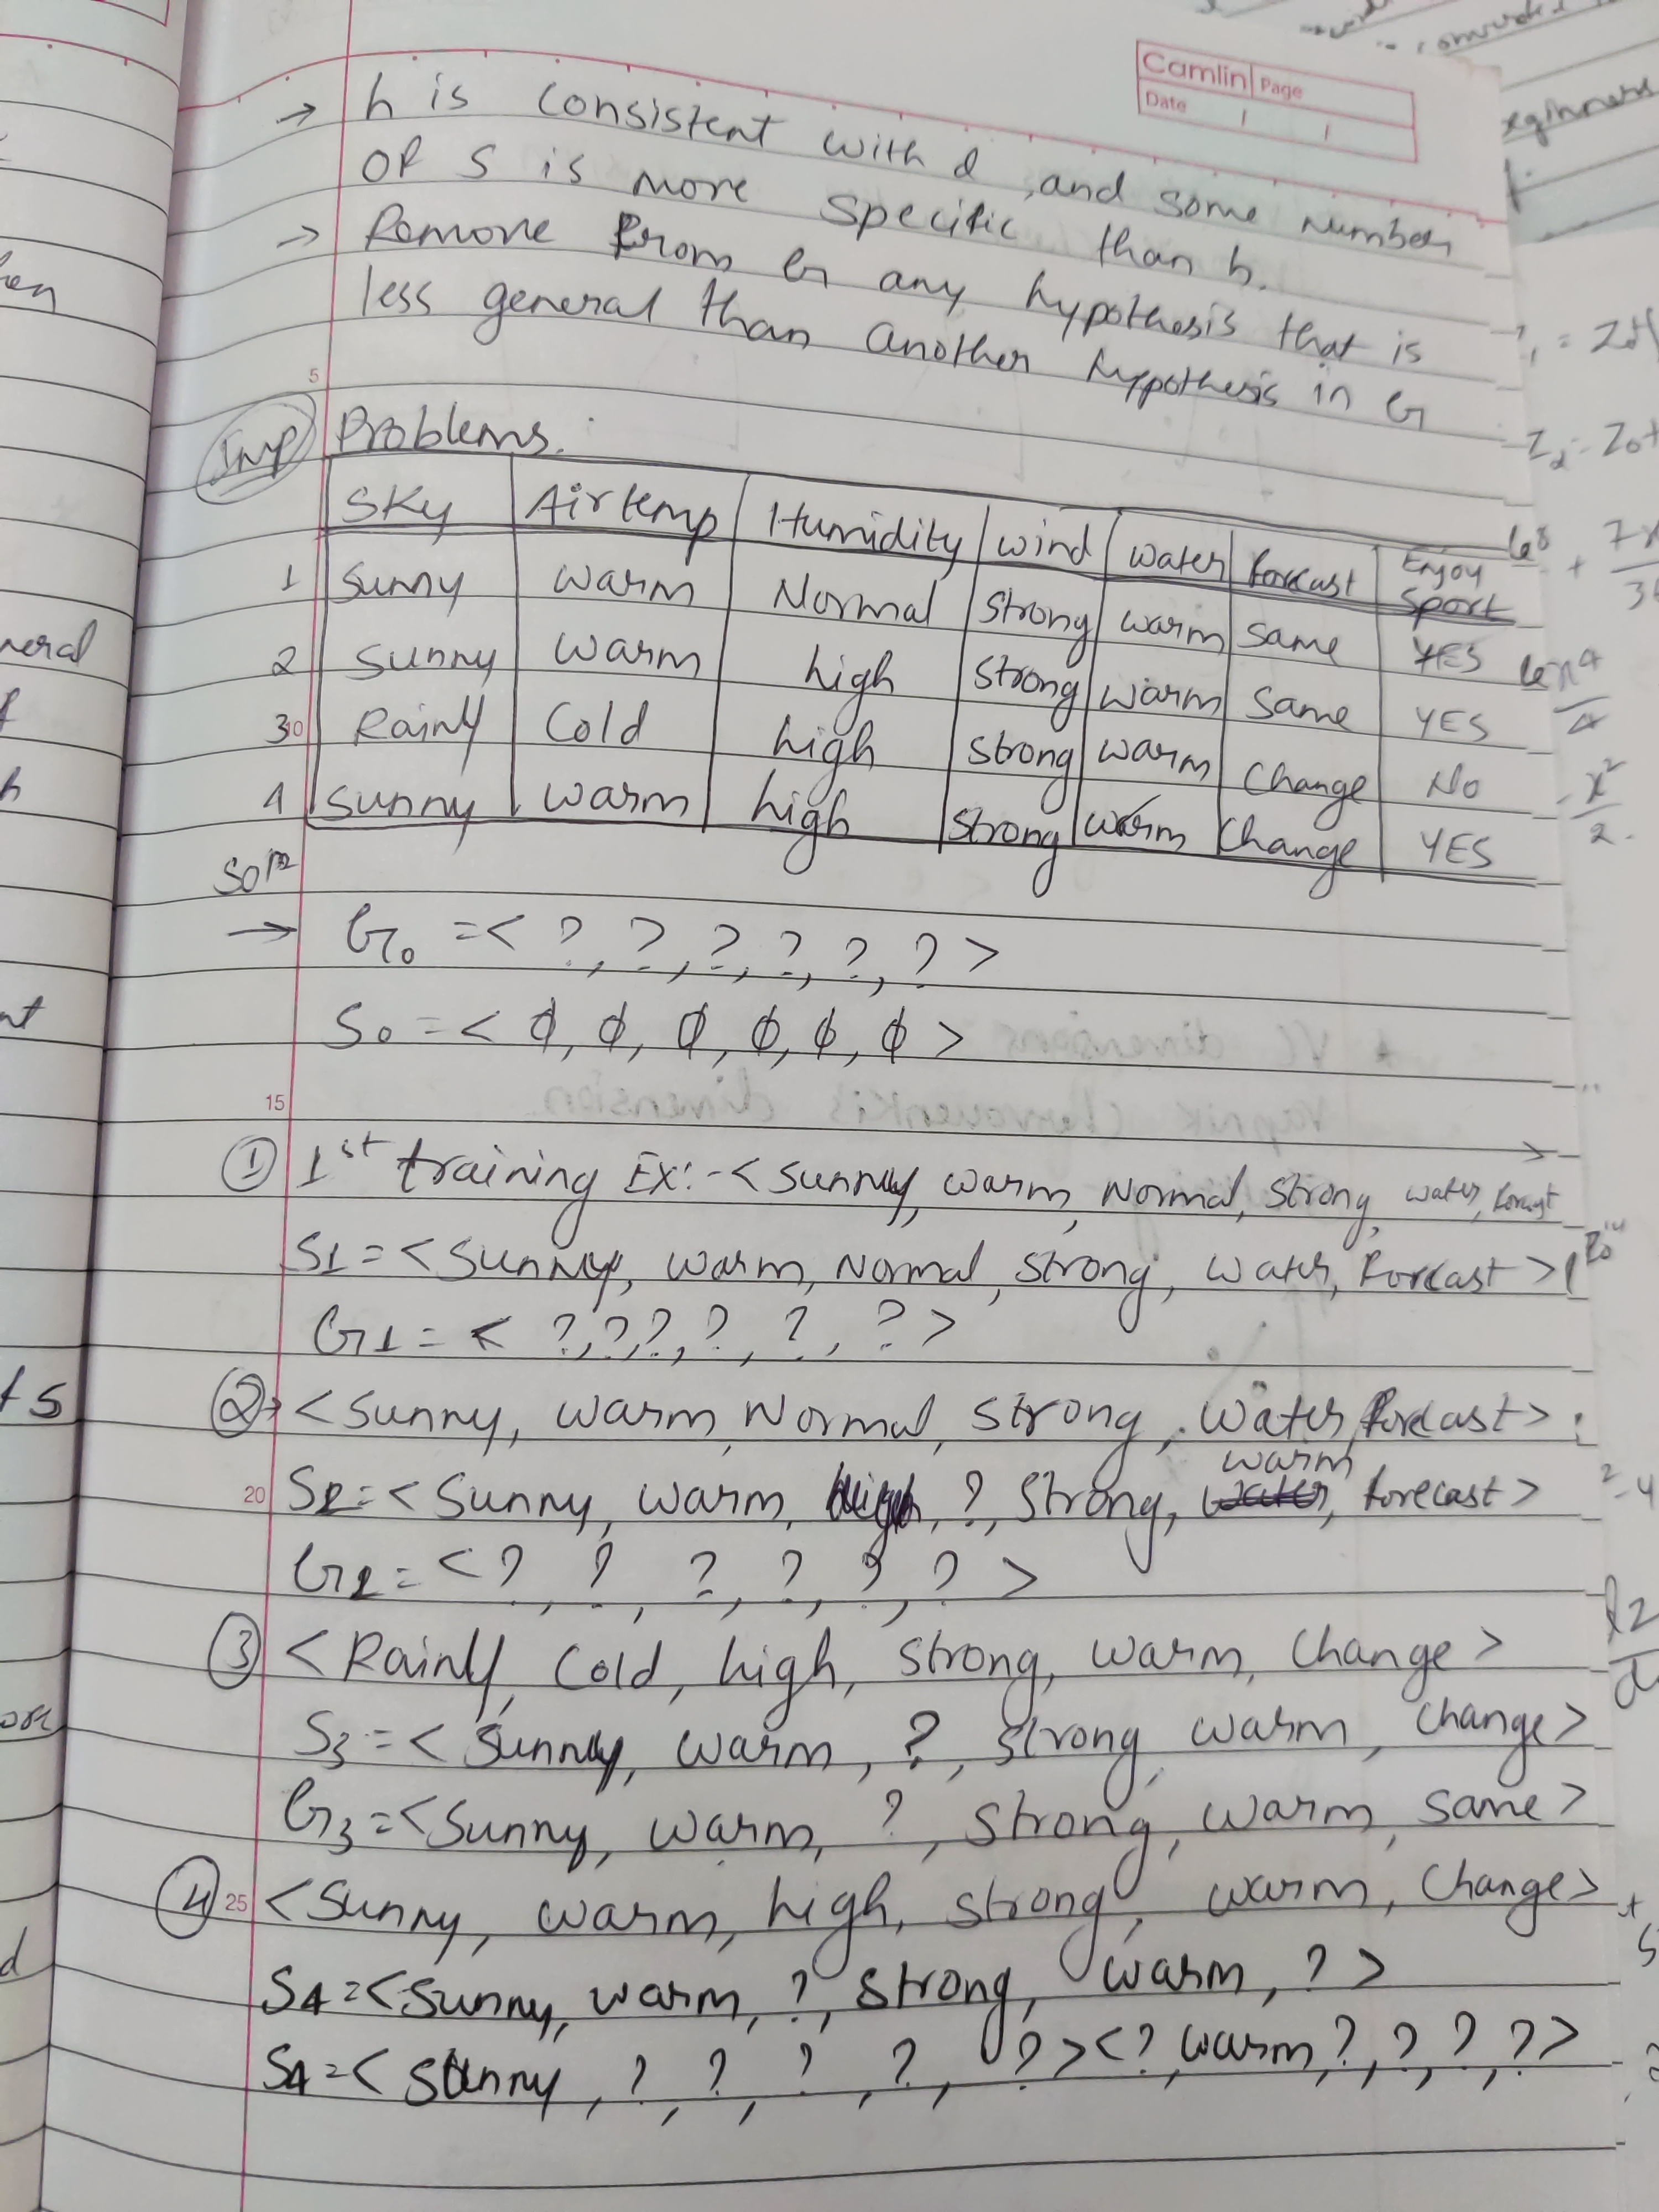 Camlin Page
Date
→ h is consistent with d, and some number
of S is more specific than h.
→ Remove from G any hypothesis that is
less general than another hypothesis in G
5
Imp Problems.
Sky Air temp Humidity wind water forcast Enjoy Sport
1 Sunny warm Normal strong warm same YES
2 sunny warm high strong warm same YES
3 Rainy Cold high strong warm Change No
10
4 sunny warm high strong warm Change YES
Solⁿ
→ G₀ = < ?, ?, ?, ?, ?, ? >
S₀ = < ϕ, ϕ, ϕ, ϕ, ϕ, ϕ >
15
① 1st training Ex:- < Sunny, warm, Normal, strong, water, forcast
S1 = < Sunny, warm, Normal, strong, water, Forcast >
G1 = < ?, ?, ?, ?, ?, ? >
② → < Sunny, warm, Normal, strong, water, forecast >
warm
20 S2 = < Sunny, warm, ?, strong, forecast >
G2 = < ?, ?, ?, ?, ?, ? >
③ < Rainy, Cold, high, strong, warm, Change >
S3 = < Sunny, warm, ?, strong, warm, change >
G3 = < Sunny, warm, ?, strong, warm, same >
④ 25 < Sunny, warm, high, strong, warm, Change >
S4 = < Sunny, warm, ?, strong, warm, ? >
S4 = < Sunny, ?, ?, ?, ?, ? > < ?, warm, ?, ?, ?, ? >